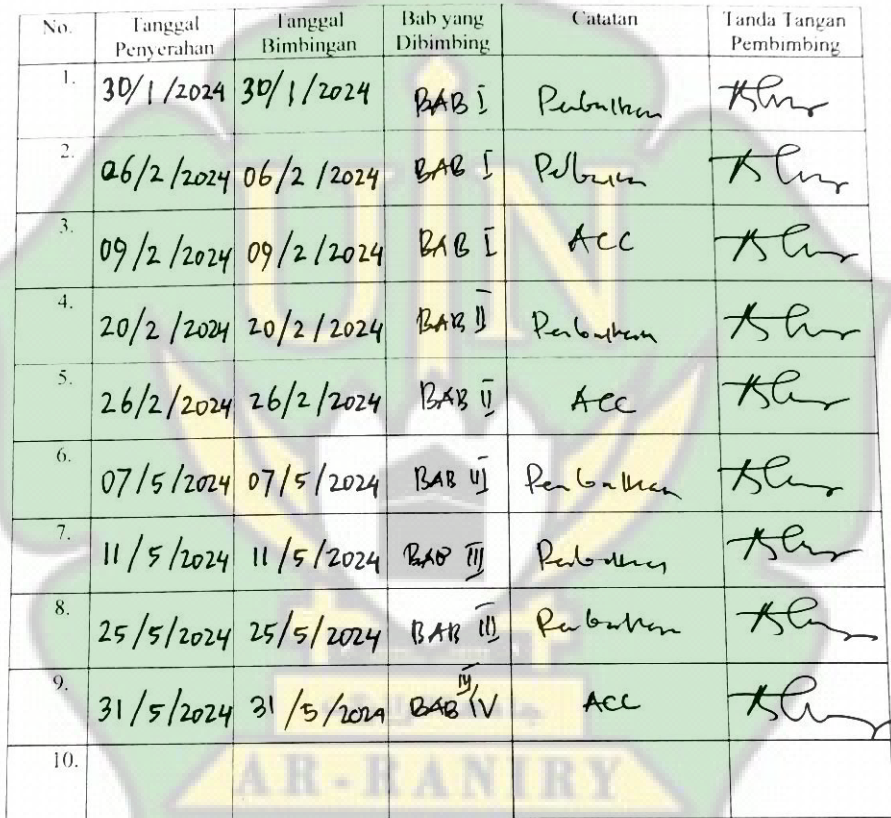 No. Tanggal Penyerahan Tanggal Bimbingan Bab yang Dibimbing Catatan Tanda Tangan Pembimbing
1. 30/1/2024 30/1/2024 BAB I Perbaikan
2. 06/2/2024 06/2/2024 BAB I Perbaikan
3. 09/2/2024 09/2/2024 BAB I ACC
4. 20/2/2024 20/2/2024 BAB II Perbaikan
5. 26/2/2024 26/2/2024 BAB II ACC
6. 07/5/2024 07/5/2024 BAB III Perbaikan
7. 11/5/2024 11/5/2024 BAB III Perbaikan
8. 25/5/2024 25/5/2024 BAB III Perbaikan
9. 31/5/2024 31/5/2024 BAB III/IV ACC
10.
UIN
AR-RANIRY